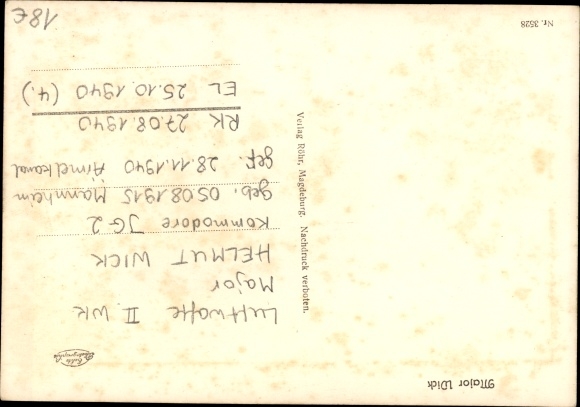 Major Wick
Echte Photographie
Luftwaffe II. WK
Major
HELMUT WICK
Kommodore JG 2
geb. 05.08.1915 Mannheim
gef. 28.11.1940 Ärmelkanal
RK 27.08.1940
EL 25.10.1940 (4.)
Verlag Röhr, Magdeburg. Nachdruck verboten.
Nr. 3528
18€